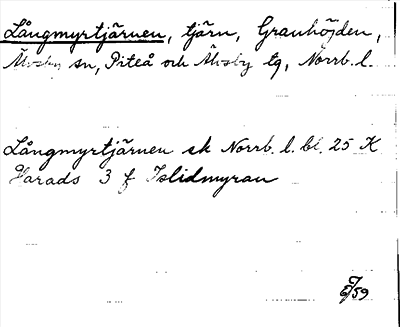 Långmyrtjärnen, tjärn, Granhöjden,
Älvsby sn, Piteå och Älvsby tg, Norrb. l.
Långmyrtjärnen sk Norrb. l. bl. 25 K
Harads 3 f Islidmyran
/59